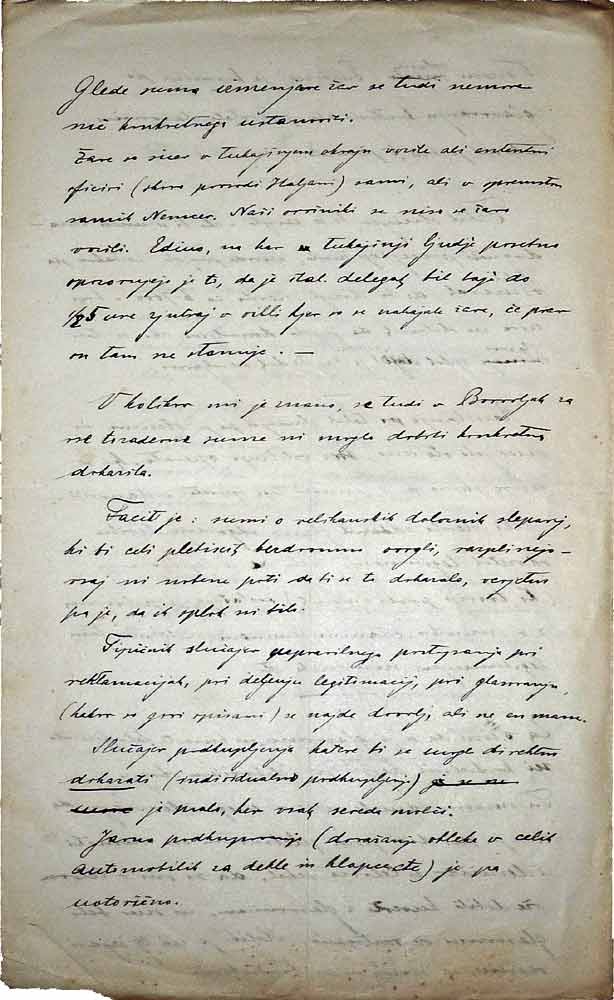 Glede suma izmenjave žar se tudi nemore
nič konkretnega ustanoviti.
Žare so sicer v tukajšnjem okraju vozili ali ententni
oficiri (skoro povsodi Italjani) sami, ali v spremstvu
samih Nemcev. Naši zvezniki se niso se žare
vozili. Edino, na kar tukajšnji ljudje posebno
opozorujejo je ti, da je ital. delegat bil baje do
1/25 ure zjutraj v villi kjer so se nahajale žare, če prav
on tam ne stanuje. —
V kolikor mi je znano, se tudi v Borovljah za
vse tozadevne sume ni moglo dobiti konkretna
dokazila.
Facit je: sumi o velikanskih dolovnih sleparij,
ki bi celi plebiscit bezdvomno ovrgli, razplinejo —
vsaj ni nobene poti da bi se to dokazalo, verjetno
pa je, da ih sploh ni bilo.
Tipičnih slučajev nepravilnega postopanja pri
reklamacijah, pri deljenju legitimacij, pri glasovanju,
(kakor so gori opisani) se najde dovolj, ali ne en masse.
Slučajev podkupljenja katere bi se mogle direktno
dokazati (individualno podkupljenje) je se ne
more je malo, ker vsak seveda molči.
Javno podkupovanje (dovažanje obleke v celih
automobilih za dekle in hlapce etc) je pa
notorično.